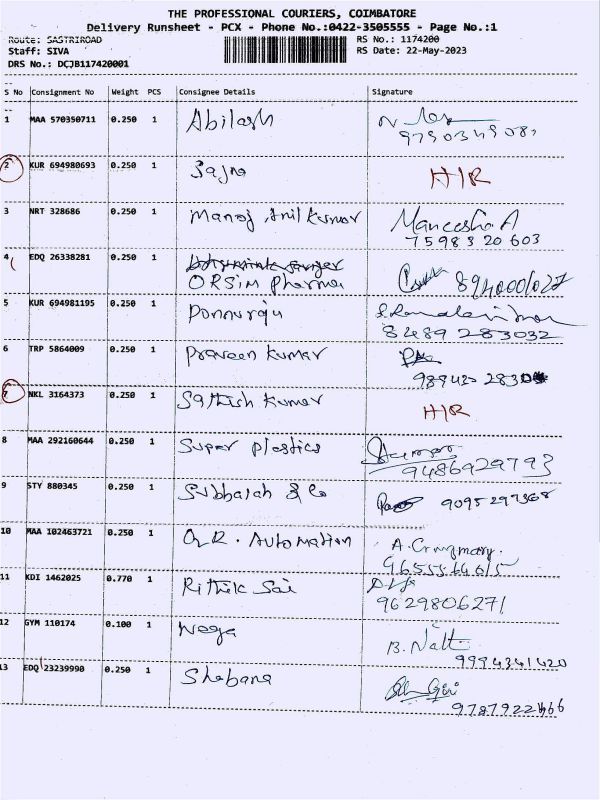 THE PROFESSIONAL COURIERS, COIMBATORE
Delivery Runsheet - PCX - Phone No.:0422-3505555 - Page No.:1
Route: SASTRIROAD RS No.: 1174200
Staff: SIVA RS Date: 22-May-2023
DRS No.: DCJB117420001
S No Consignment No Weight PCS Consignee Details Signature
1 MAA 570350711 0.250 1 Abilash
2 KUR 694980693 0.250 1 Sajna H/R
3 NRT 328686 0.250 1 Manoj Anil Kumar Maneesha A
7598320603
4 EDQ 26338281 0.250 1
ORSIM Pharma
5 KUR 694981195 0.250 1 Ponnuraju
8489 283032
6 TRP 5864009 0.250 1 Praveen Kumar
7 NKL 3164373 0.250 1 Sathish Kumar H/R
8 MAA 292160644 0.250 1 Super Plastics
9486929793
9 STY 880345 0.250 1 Subbaiah & Co 9095297368
10 MAA 102463721 0.250 1 Automation
11 KDI 1462025 0.770 1 Rithik Sai
9629806271
12 GYM 110174 0.100 1 Naga
9994341420
13 EDQ 23239990 0.250 1 Shabana
9787922466